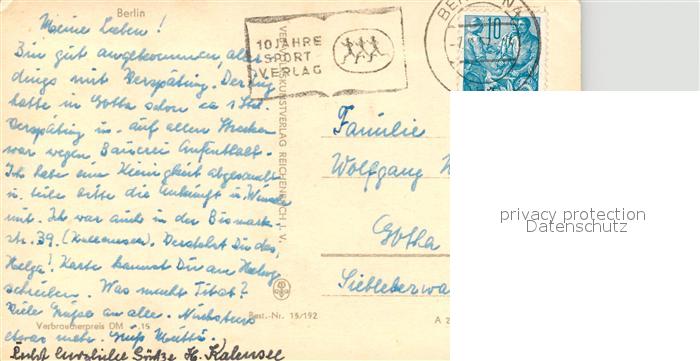 Berlin
Meine Lieben!
Bin gut angekommen, aller
dings mit Verspätung. Der Zug
hatte in Gotha schon ca 1 Std.
Verspätung u. auf allen Strecken
war wegen Bauerei Aufenthalt.
Ich habe eine Kleinigkeit abgesandt
u. teile bitte die Ankunft u.
mit. Ich war auch in der Bismarck-
str. 39. Verstehst Du das,
Helga! Karte kannst Du an
schreiben. Was macht
Viele Grüße an alle. Nächstens
etwas mehr. Gruß Mutti.
Recht herzliche Grüße H.
Verbraucherpreis DM -.15
VEB VOLKSKUNSTVERLAG REICHENBACH i. V.
Best.-Nr. 15/192
10 JAHRE
SPORT
VERLAG
10
Familie
Wolfgang
Gotha
Siebleber
A 2
privacy protection
Datenschutz